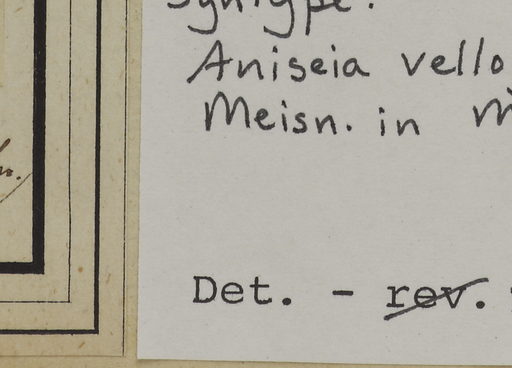 Syntype.
Aniseia vello
Meisn. in M
Det. - rev.